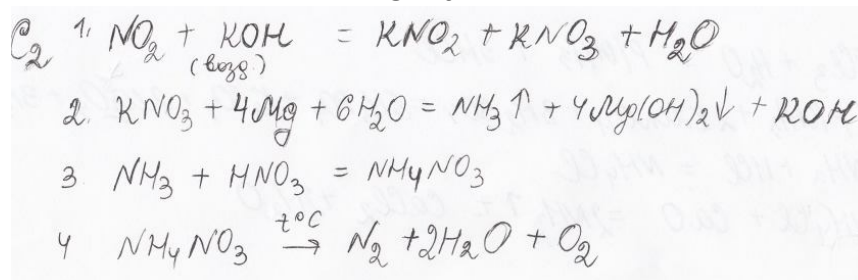 C2 1. NO2 + KOH = KNO2 + KNO3 + H2O
(возд.)
2. KNO3 + 4Mg + 6H2O = NH3↑ + 4Mg(OH)2↓ + KOH
3 NH3 + HNO3 = NH4NO3
t°C
4 NH4NO3 → N2 + 2H2O + O2